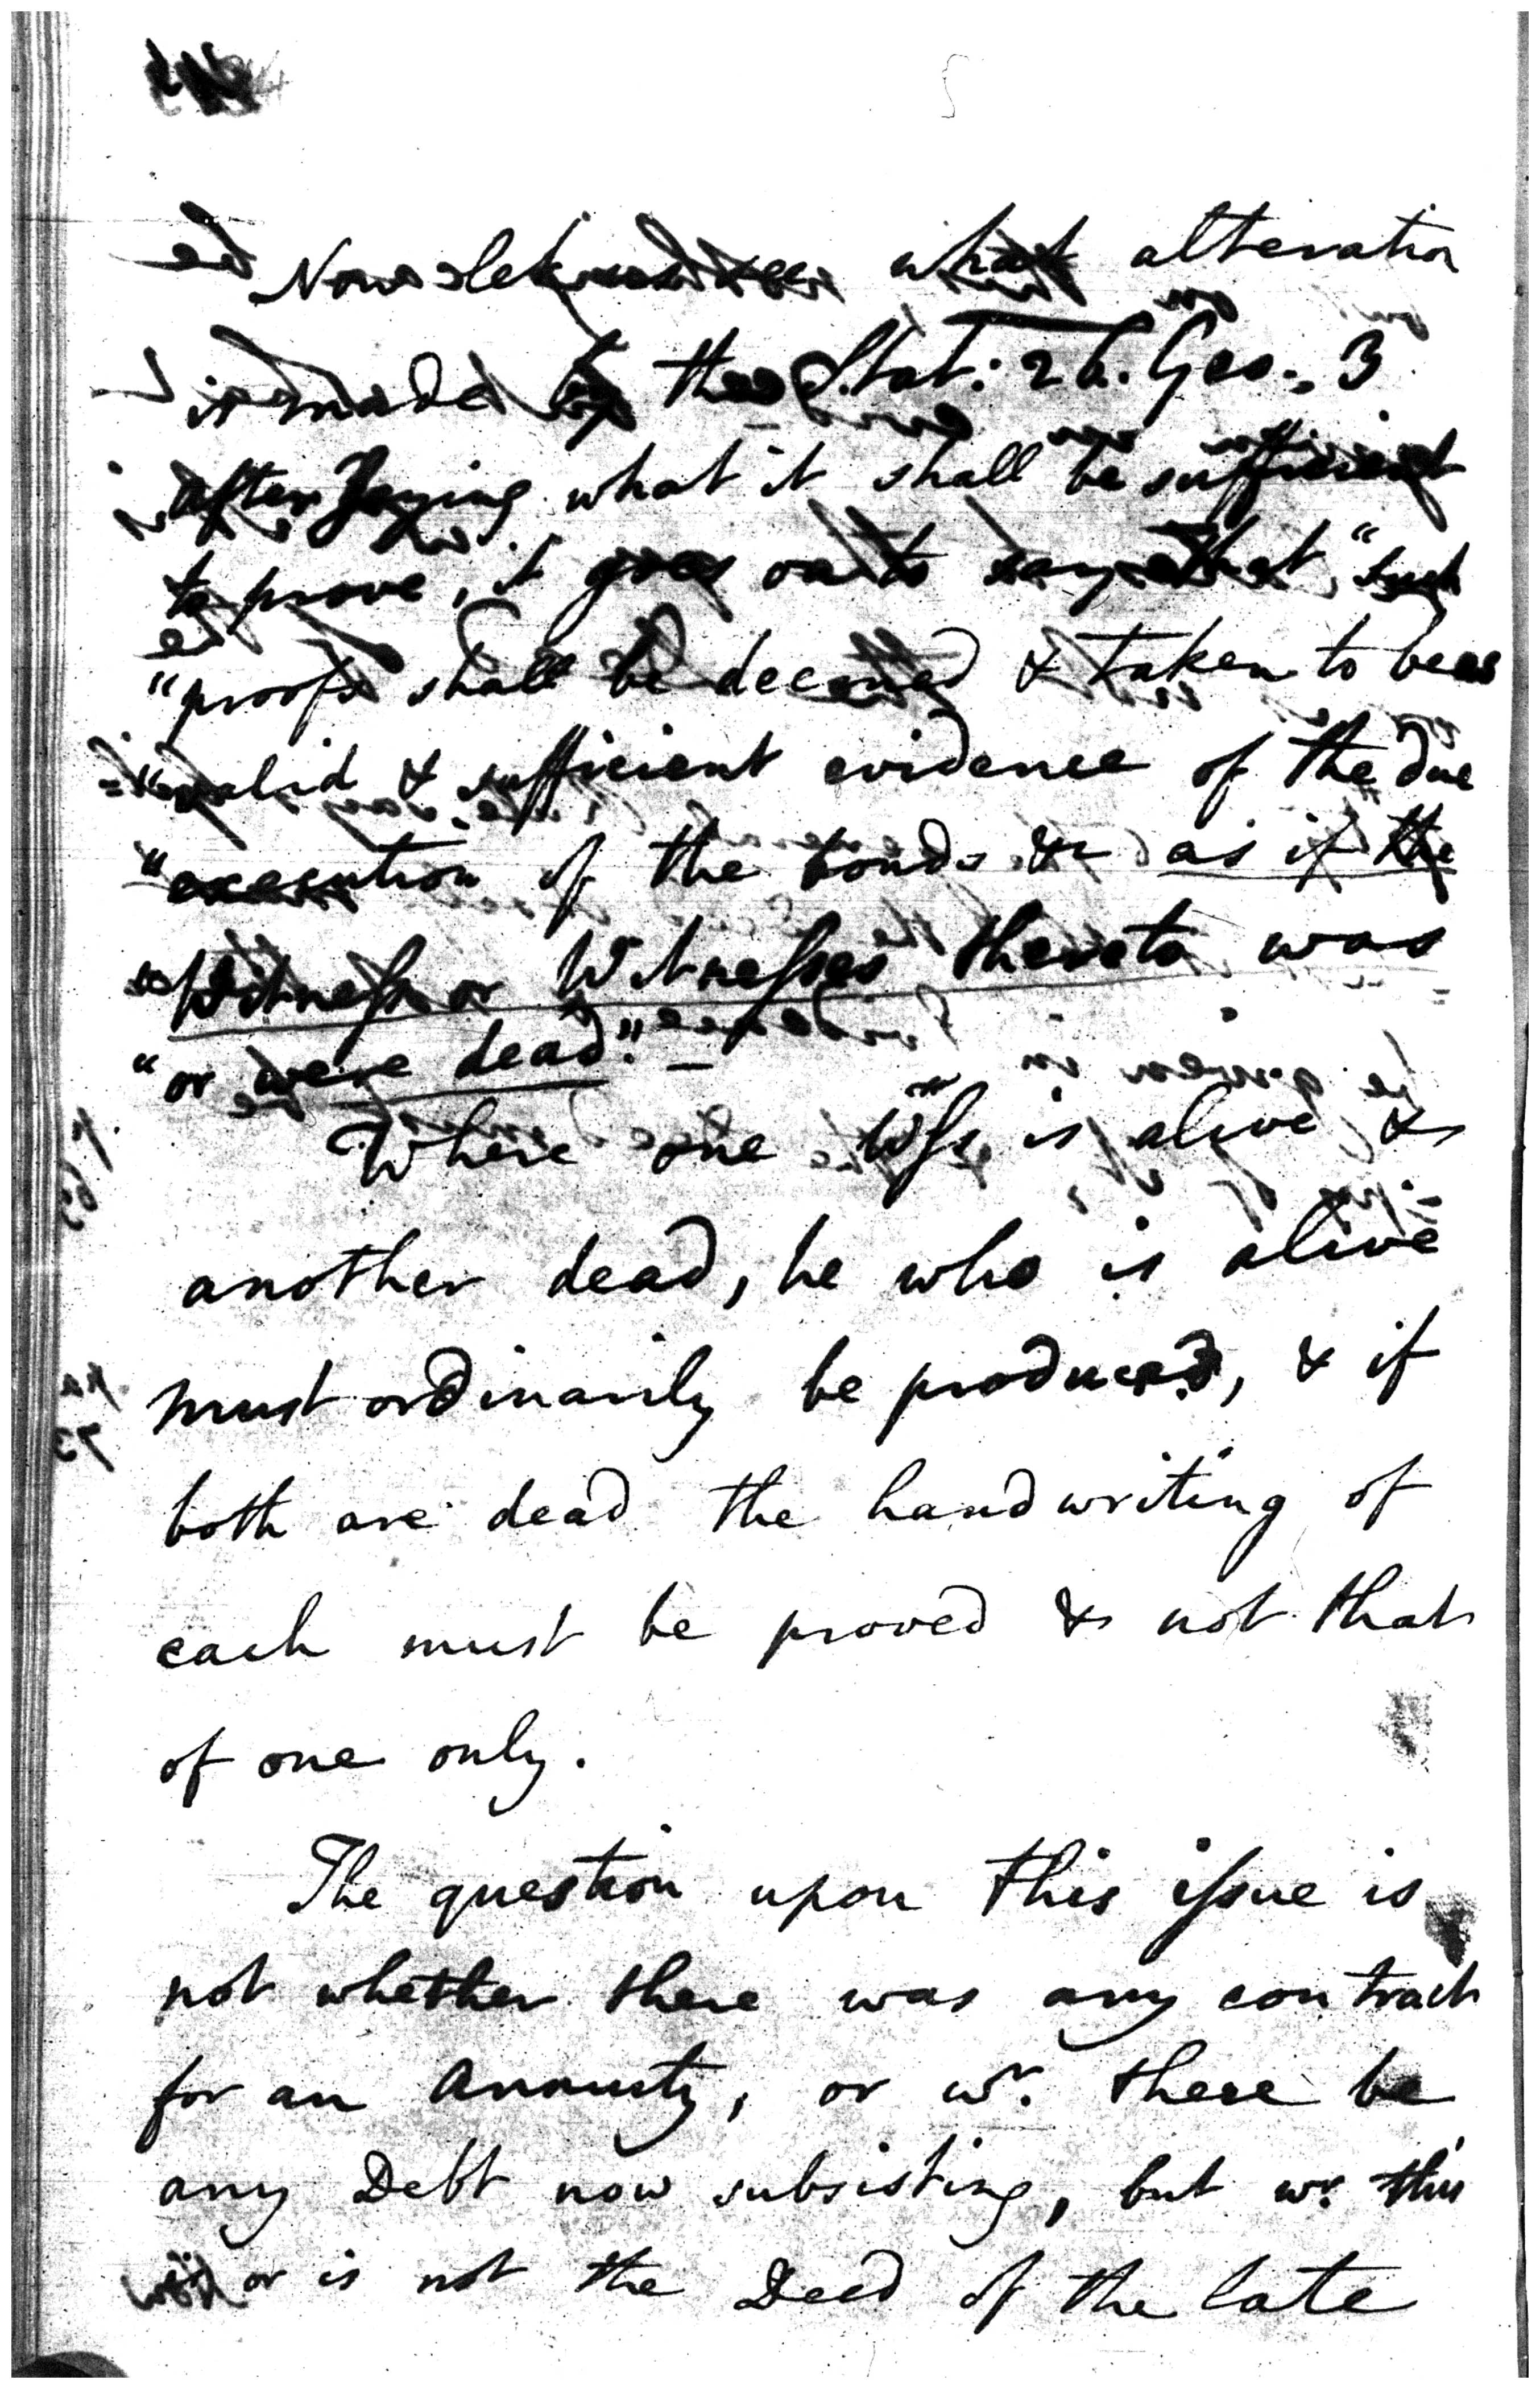 Now let us see what alteration
is made by the Stat: 26. Geo. 3
after saying what it shall be sufficient
to prove, it goes on to say that "such
"proofs shall be deemed & taken to be as
"valid & sufficient evidence of the due
"execution of the bonds &c as if the
"Witness or Witnesses thereto was
"or were dead". —
Where one Wss is alive &
another dead, he who is alive
must ordinarily be produced, & if
both are dead the handwriting of
each must be proved & not that
of one only.
The question upon this issue is
not whether there was any contract
for an Annuity, or wr. there be
any Debt now subsisting, but wr. this
or is not the Deed of the late